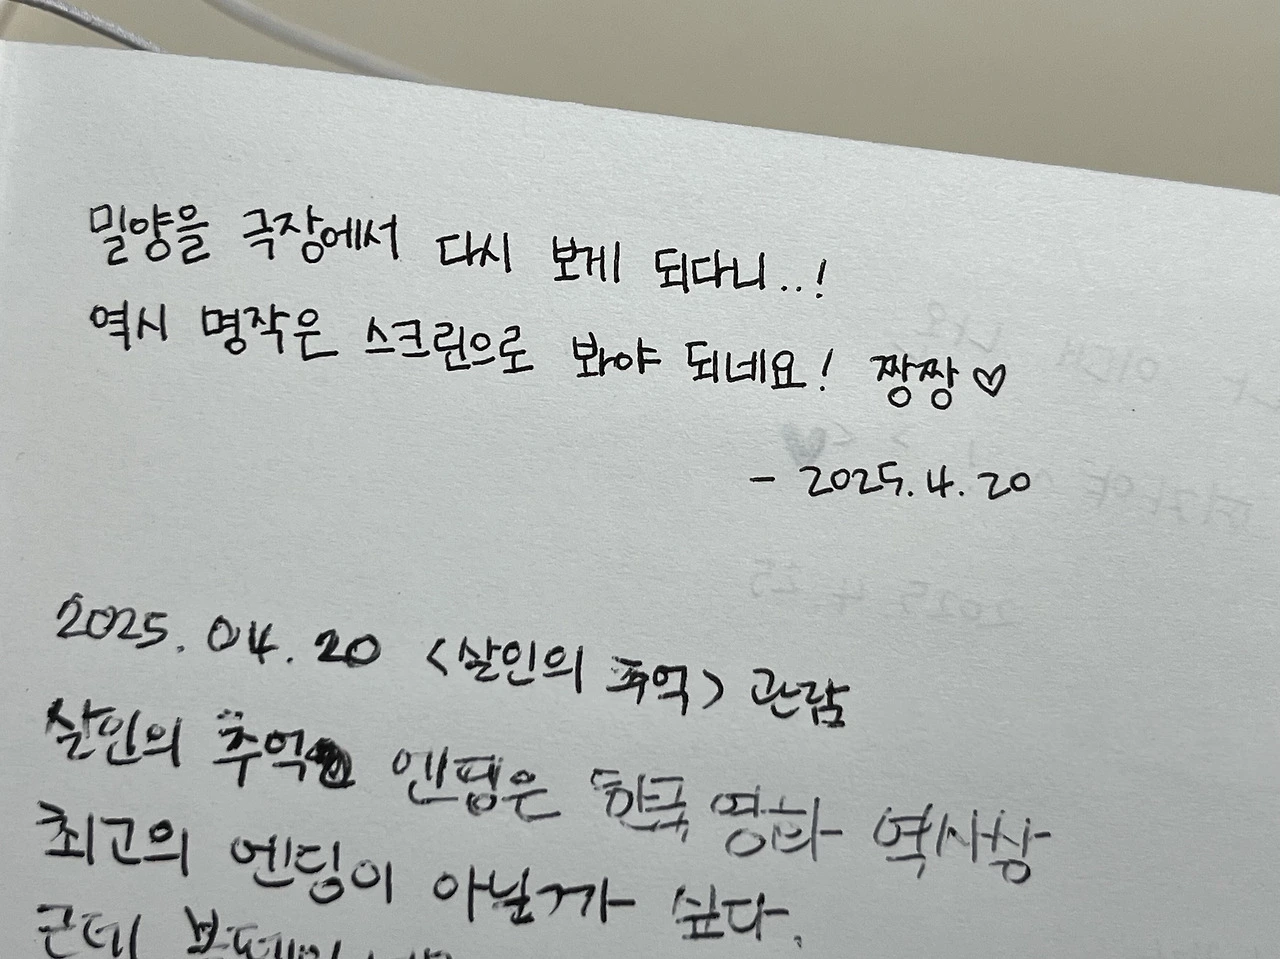 밀양을 극장에서 다시 보게 되다니..!
역시 명작은 스크린으로 봐야 되네요! 짱짱♡
- 2025.4.20
2025.04.20 <살인의 추억> 관람
살인의 추억 엔딩은 한국 영화 역사상
최고의 엔딩이 아닐까 싶다.
근데